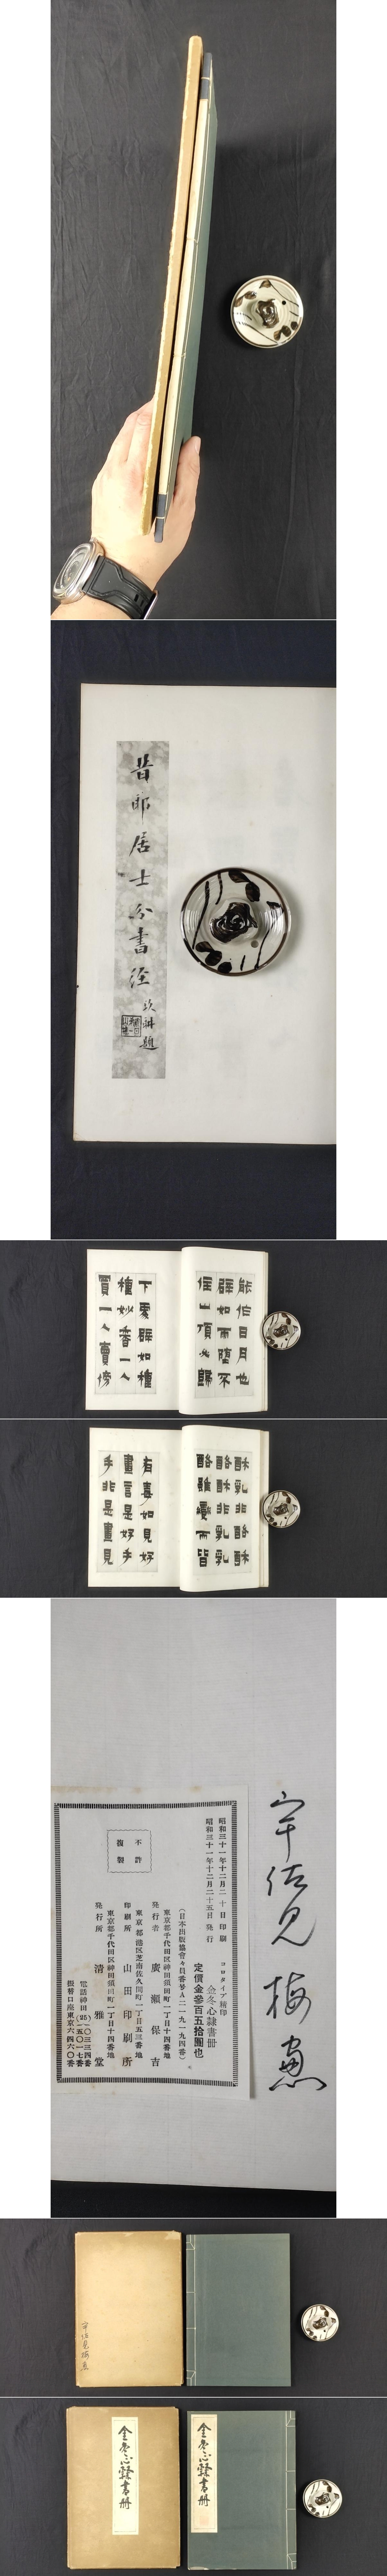 昔邪居士分書
題
能作日月也
辟如雨墮不
住山頂必歸
下雯辟如種
種妙香一人
賣一人賣傍
酥乳非酪
酪酥非乳
酪雖變而皆
有毒如見好
畫言是好手
手非是畫見
宇佐見梅窓
昭和三十一年十二月二十日印刷
昭和三十一年十二月二十五日発行
コロタイプ精印
金冬心隷書冊
定價金參百五拾圓也
(日本出版協會々員番号A二一九一九四番)
東京都千代田区神田須田町一丁目十四番地
発行者 廣瀬保吉
東京都港区芝南佐久間町一丁目五三番地
印刷所 山田印刷所
東京都千代田区神田須田町一丁目十四番地
発行所 清雅堂
電話神田(25)
振替口座東京六四六〇番
不許
複製
宇佐見梅窓
金冬心隷書冊
金冬心隷書冊